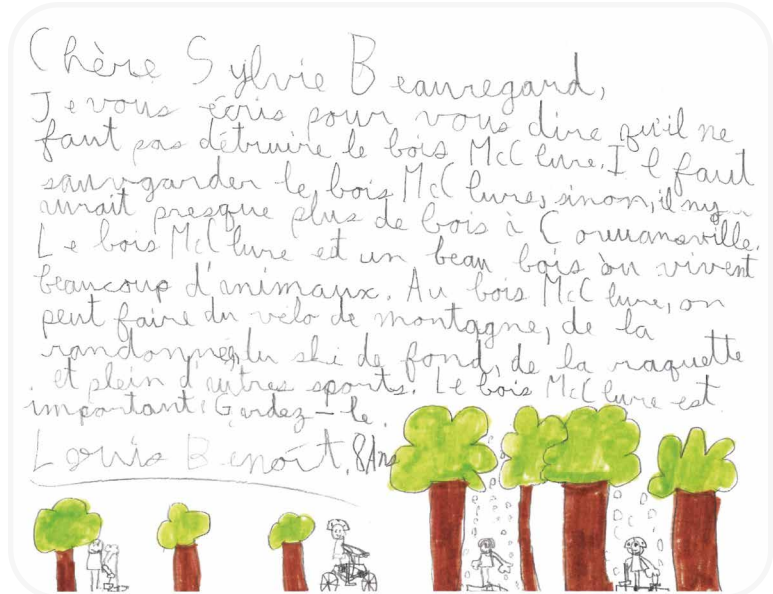 Chère Sylvie Beauregard,
Je vous écris pour vous dire qu'il ne
faut pas détruire le bois McClure. Il faut
sauvgarder le bois McClure, sinon, il ny
aurait presque plus de bois à Cowansville.
Le bois McClure est un beau bois où vivent
beaucoup d'animaux. Au bois McClure, on
peut faire du vélo de montagne, de la
randonnée, du ski de fond, de la raquette
et plein d'autres sports. Le bois McClure est
important. Gardez-le.
Louis Benoit, 8 Ans